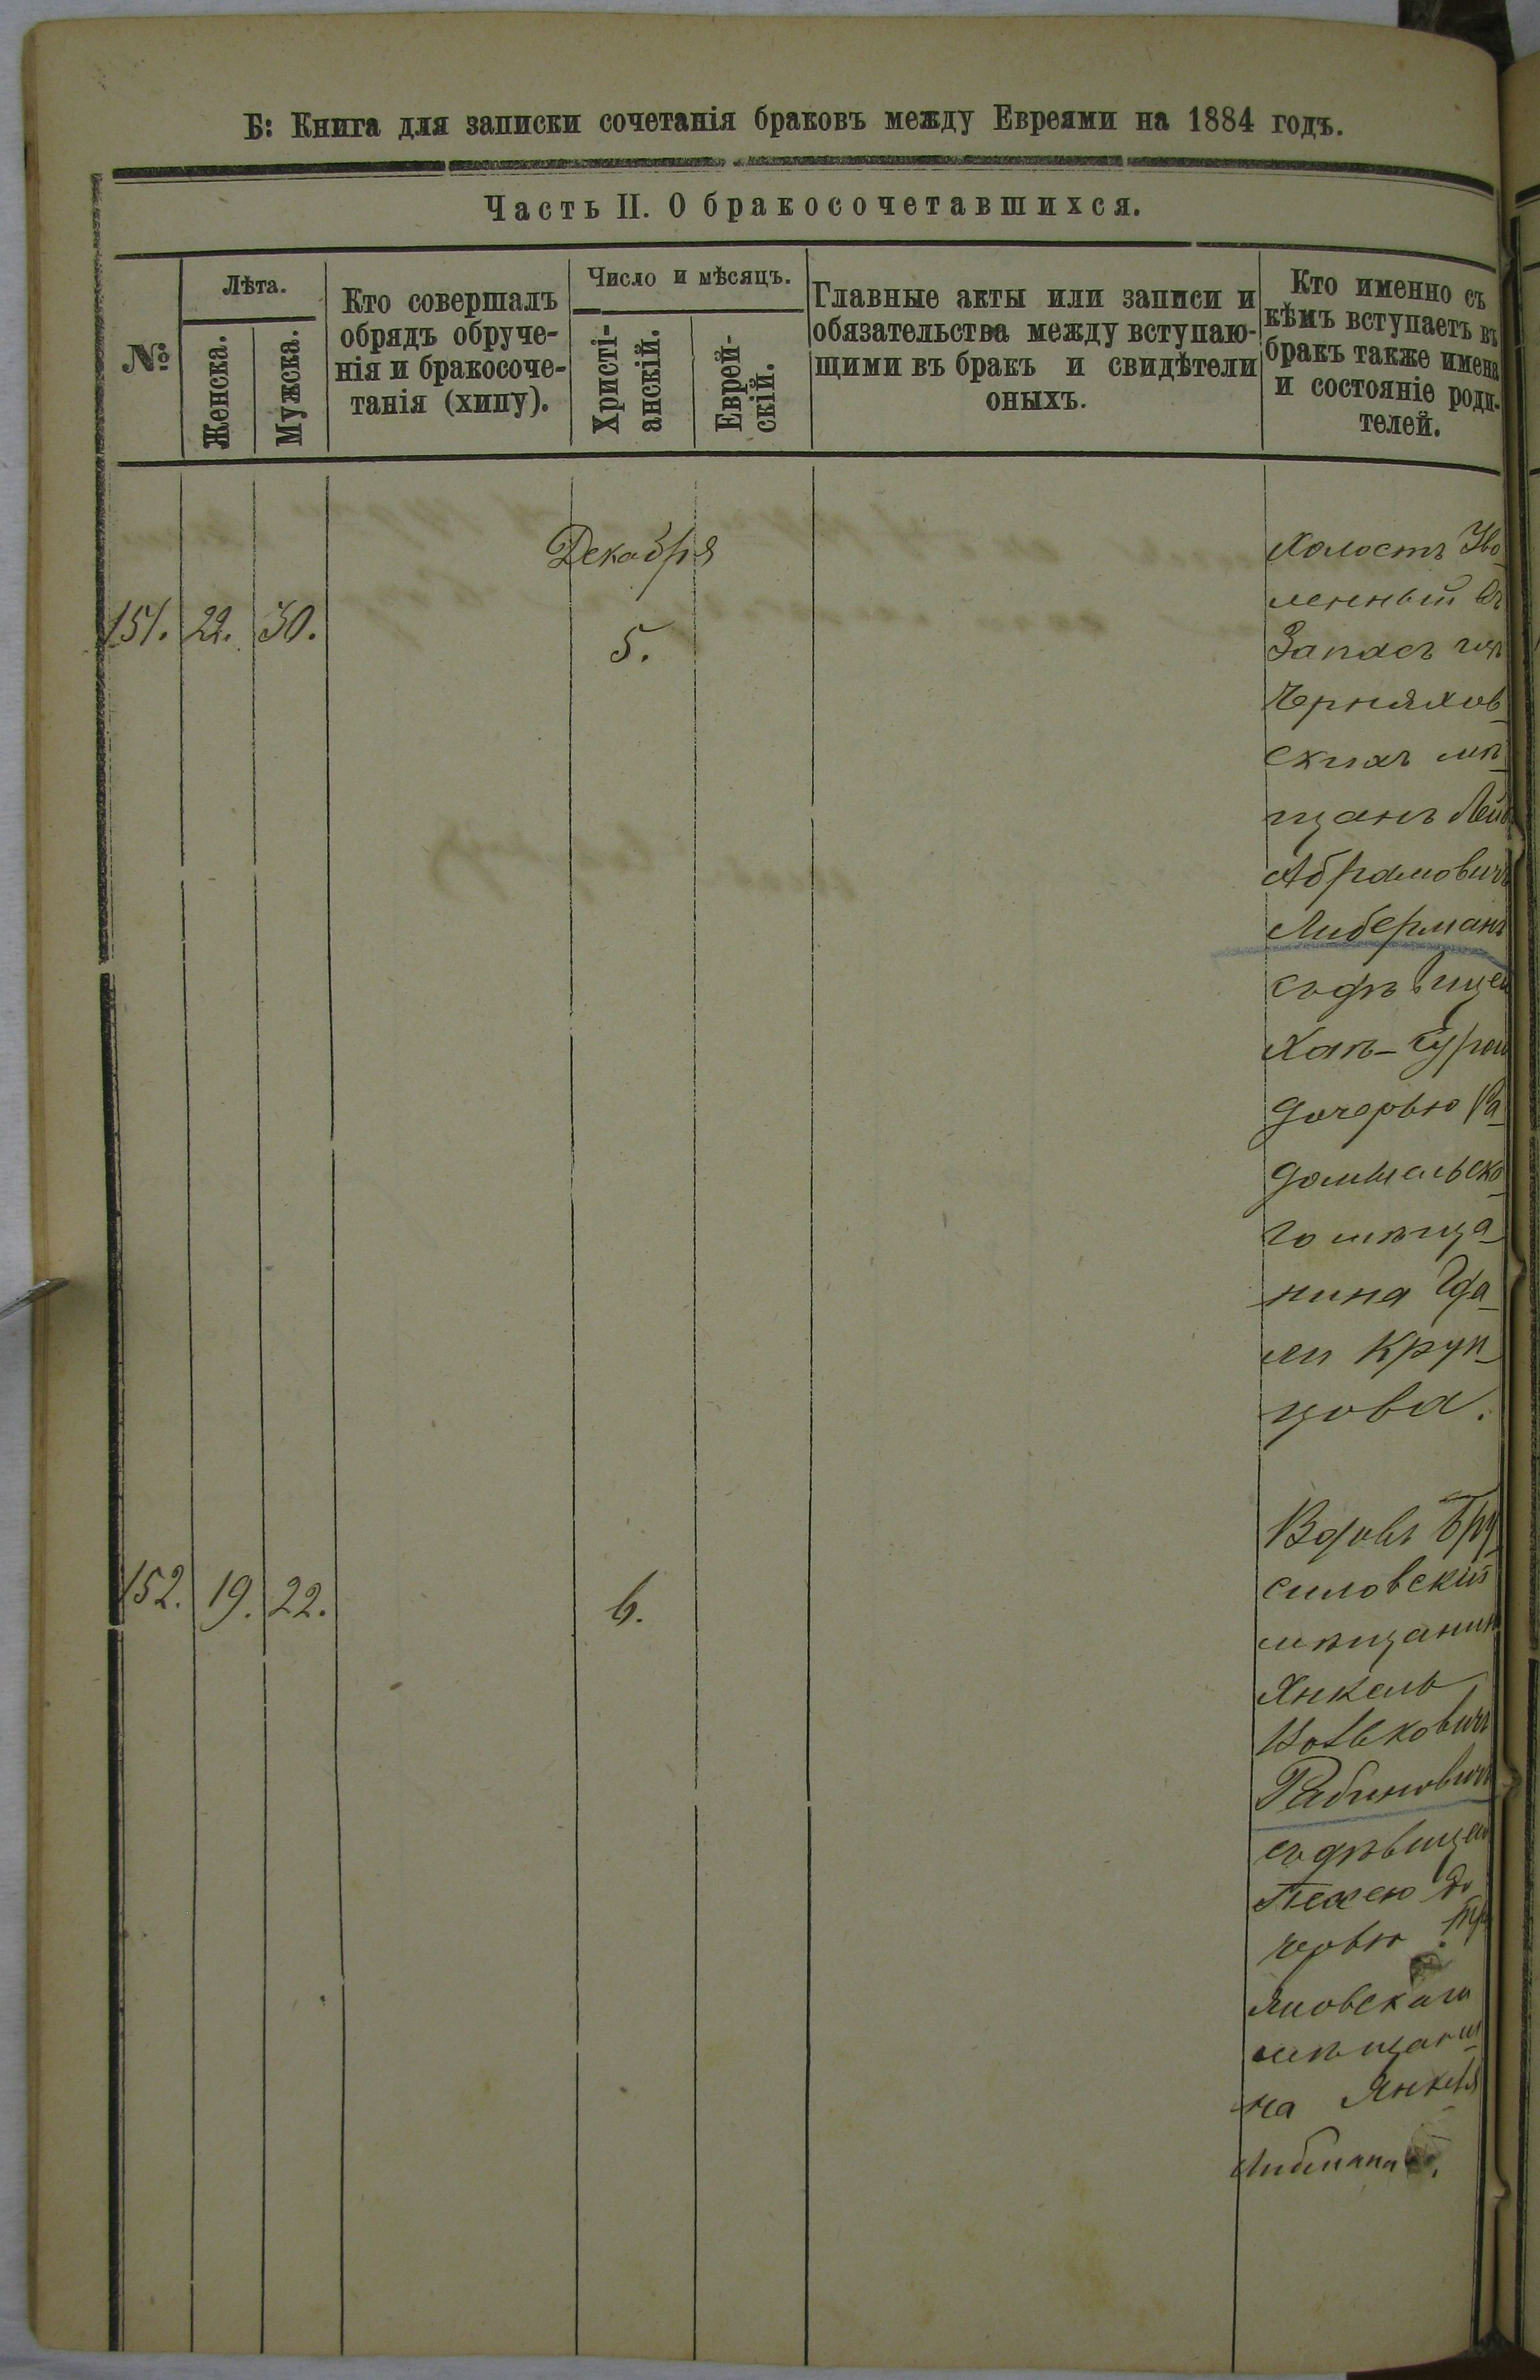 Б: Книга для записки сочетанія браковъ между Евреями на 1884 годъ.
Часть II. О бракосочетавшихся.
№
Лѣта.
Женска.
Мужска.
Кто совершалъ
обрядъ обруче-
нія и бракосоче-
танія (хипу).
Число и мѣсяцъ.
Христі-
анскій.
Еврей-
скій.
Главные акты или записи и
обязательства между вступаю-
щими въ бракъ и свидѣтели
оныхъ.
Кто именно съ
кѣмъ вступаетъ въ
бракъ также имена
и состояніе роди-
телей.
Декабря
151. 22. 30. 5.
Холостъ Уво
ленный въ
Запасъ изъ
Черняхов-
скихъ мѣ-
щанъ Лей
Абрамовичъ
Либерманъ
съ дѣвицею
Хая-Сурою
дочерью Ра-
домысльска-
го мѣща-
нина Гда-
ли Круп-
цова.
152. 19. 22. 6.
Вдовъ Бру-
силовскій
мѣщанинъ
Янкель
Вольковичъ
Рабиновичъ
съ дѣвицею
Песею до
черью
яновскаго
мѣщани-
на Янкеля
Либмана.